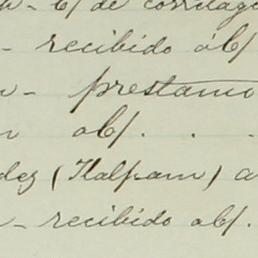 - C/ de corretag
- recibido ab/
- prestamo
ab/. . .
dez (Tlalpam) a
- recibido ab/.